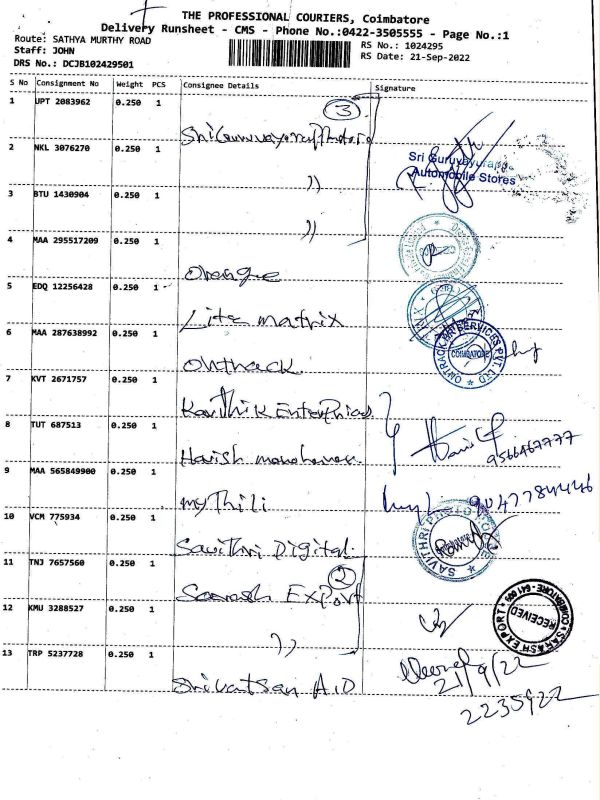 THE PROFESSIONAL COURIERS, Coimbatore
Delivery Runsheet - CMS - Phone No.:0422-3505555 - Page No.:1
Route: SATHYA MURTHY ROAD
Staff: JOHN
DRS No.: DCJB102429501
RS No.: 1024295
RS Date: 21-Sep-2022
S No Consignment No Weight PCS Consignee Details Signature
1 UPT 2083962 0.250 1
3
2 NKL 3076270 0.250 1
Sri Guruvayurappa
Automobile Stores
3 BTU 1430904 0.250 1 ))
4 MAA 295517209 0.250 1 ))
Orange
5 EDQ 12256428 0.250 1
Lite matrix
6 MAA 287638992 0.250 1
ONTRACK HR SERVICES PVT LTD
COIMBATORE
Ontrack
7 KVT 2671757 0.250 1
Karthik Enterprises
8 TUT 687513 0.250 1
9566467777
Harish manoharan
9 MAA 565849900 0.250 1
mythili
10 VCM 775934 0.250 1
SAVITHRI PHOTO
Savithri Digital
11 TNJ 7657560 0.250 1
2
Sarash Export
12 KMU 3288527 0.250 1
SARASH EXPORT
RECEIVED
))
13 TRP 5237728 0.250 1
21/9/22
Srivatsan A.D
2235922